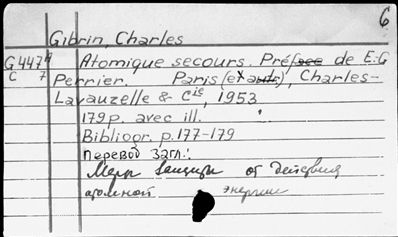 6
Gibrin, Charles
G 4474 Atomique secours. Préface de E.G
C 7 Perrier. Paris (et autr), Charles-
Lavauzelle & Cie, 1953
179 p. avec ill.
Bibliogr. p. 177-179
Перевод Загл.:
Меры защиты от действия
атомной энергии